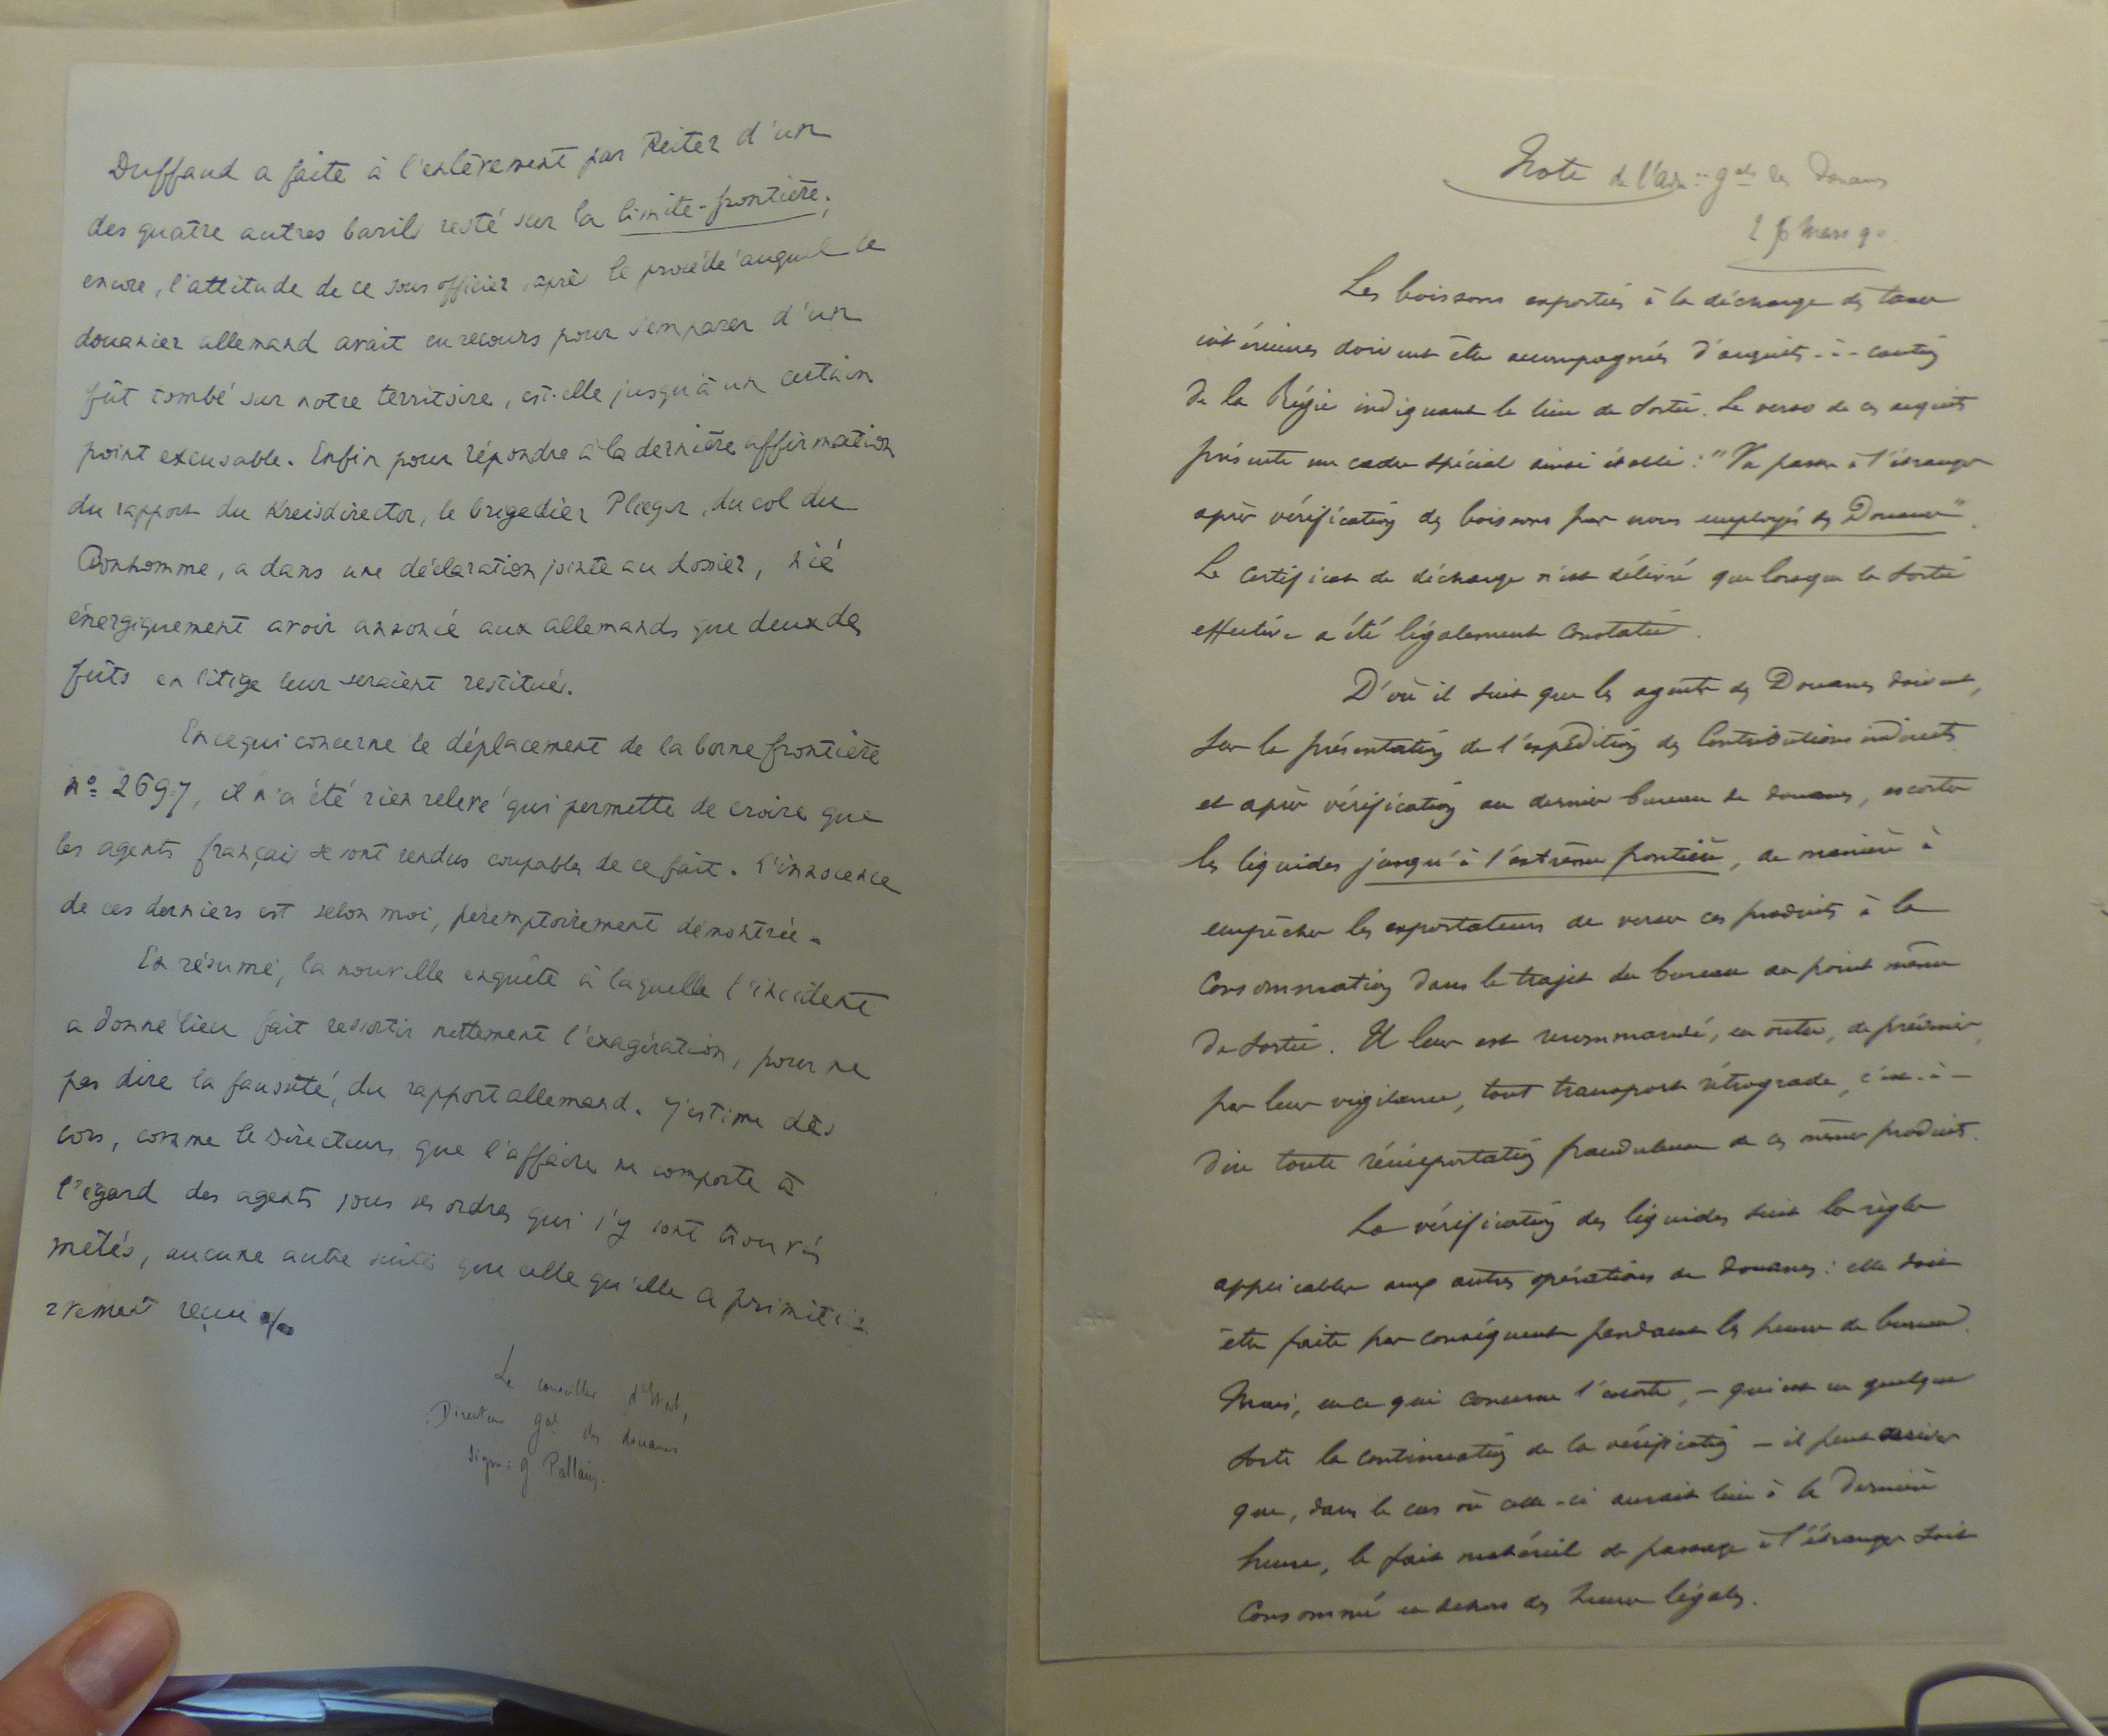 Duffaud a faite à l'enlèvement par Reiter d'un
des quatre autres barils resté sur la limite-frontière;
encore, l'attitude de ce sous officier, après le procédé auquel le
douanier allemand avait eu recours pour s'emparer d'un
fût tombé sur notre territoire, est-elle jusqu'à un certain
point excusable. Enfin pour répondre à la dernière affirmation
du rapport du Kreisdirector, le brigadier Plieger, du col du
Bonhomme, a dans une déclaration jointe au dossier, nié
énergiquement avoir annoncé aux allemands que deux des
fûts en litige leur seraient restitués.
En ce qui concerne le déplacement de la borne frontière
nº 2697, il n'a été rien relevé qui permette de croire que
les agents français se sont rendus coupables de ce fait. L'innocence
de ces derniers est selon moi, péremptoirement démontrée.
En résumé, la nouvelle enquête à laquelle l'incident
a donné lieu fait ressortir nettement l'exagération, pour ne
pas dire la fausseté, du rapport allemand. J'estime dès
lors, comme le Directeur, que l'affaire ne comporte à
l'égard des agents sous ses ordres qui s'y sont trouvés
mêlés, aucune autre suite que celle qu'elle a primiti=
vement reçue
Le conseiller d'Etat,
Directeur gal des douanes
signé: G Pallain.
Note de l'Adm: gale des Douanes
Mars 90
Les boissons exportées à la décharge des taxes
intérieures doivent être accompagnées d'acquits-à-caution
de la Régie indiquant le lieu de sortie. Le verso de ces acquits
présente un cadre spécial ainsi établi: "Vu passer à l'étranger
après vérification des boissons par nous employés des Douanes".
Le certificat de décharge n'est délivré que lorsque la sortie
effective a été légalement constatée.
D'où il suit que les agents des Douanes doivent,
sur la présentation de l'expédition des Contributions indirectes
et après vérification au dernier bureau de douanes, escorter
les liquides jusqu'à l'extrême frontière, de manière à
empêcher les exportateurs de verser ces produits à la
consommation dans le trajet du bureau au point même
de sortie. Il leur est recommandé, en outre, de prévenir,
par leur vigilance, tout transport rétrograde, c'est-à-
dire toute réimportation frauduleuse de ces mêmes produits.
La vérification des liquides suit les règles
applicables aux autres opérations de douanes: elle doit
être faite par conséquent pendant les heures de bureau.
Mais, en ce qui concerne l'escorte, - qui est en quelque
sorte la continuation de la vérification - il peut arriver
que, dans le cas où celle-ci aurait lieu à la dernière
heure, le fait matériel de passage à l'étranger soit
consommé en dehors des heures légales.